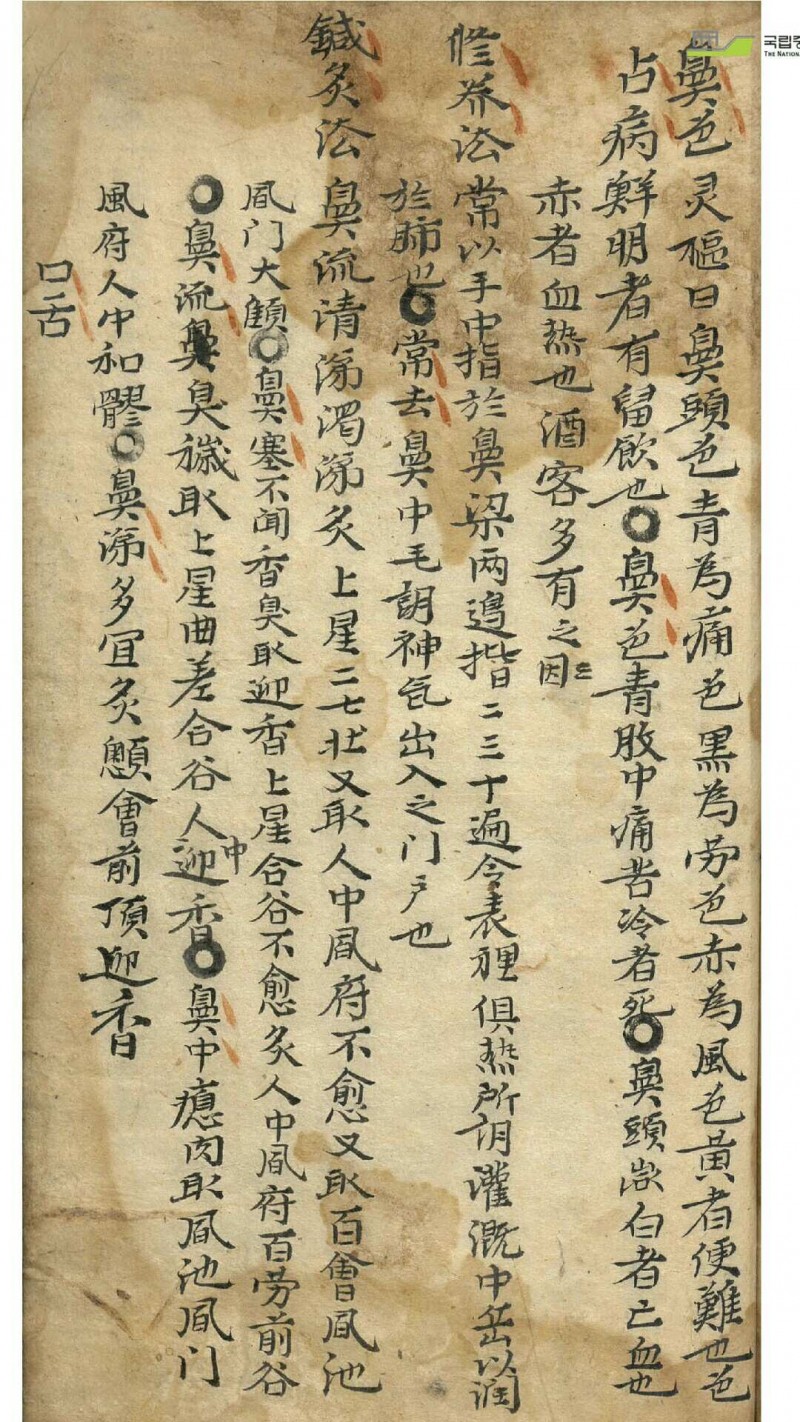 鼻色 灵樞曰鼻頭色青為痛色黑為劳色赤為風色黃者便難也色
占病 鮮明者有留飲也○鼻色青肢中痛苦冷者死○鼻頭微白者亡血也
赤者血热也酒客多有之因
修养法 常以手中指於鼻梁两邉揩二三十遍令表裡俱热所謂灌溉中岳以润
於肺也○常去鼻中毛謂神气出入之门户也
鍼灸法 鼻流清涕濁涕灸上星二七壮又取人中風府不愈又取百會風池
風门大顀○鼻塞不闻香臭取迎香上星合谷不愈灸人中風府百劳前谷
○鼻流臭穢取上星曲差合谷人中迎香○鼻中瘜肉取風池風门
風府人中和髎○鼻涕多宜灸顖會前頂迎香
口舌
국립중
THE NATIONAL